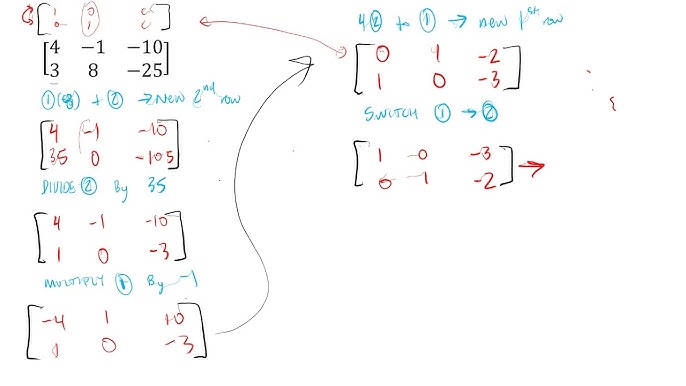 [1 0 c
0 1 c]
[4 −1 −10
3 8 −25]
①(8) + ② → New 2nd row
[4 -1 -10
35 0 -105]
DIVIDE ② By 35
[4 -1 -10
1 0 -3]
MULTIPLY ① By -1
[-4 1 10
1 0 -3]
4② to ① → new 1st row
[0 1 -2
1 0 -3]
SWITCH ① → ②
[1 0 -3
0 1 -2] →